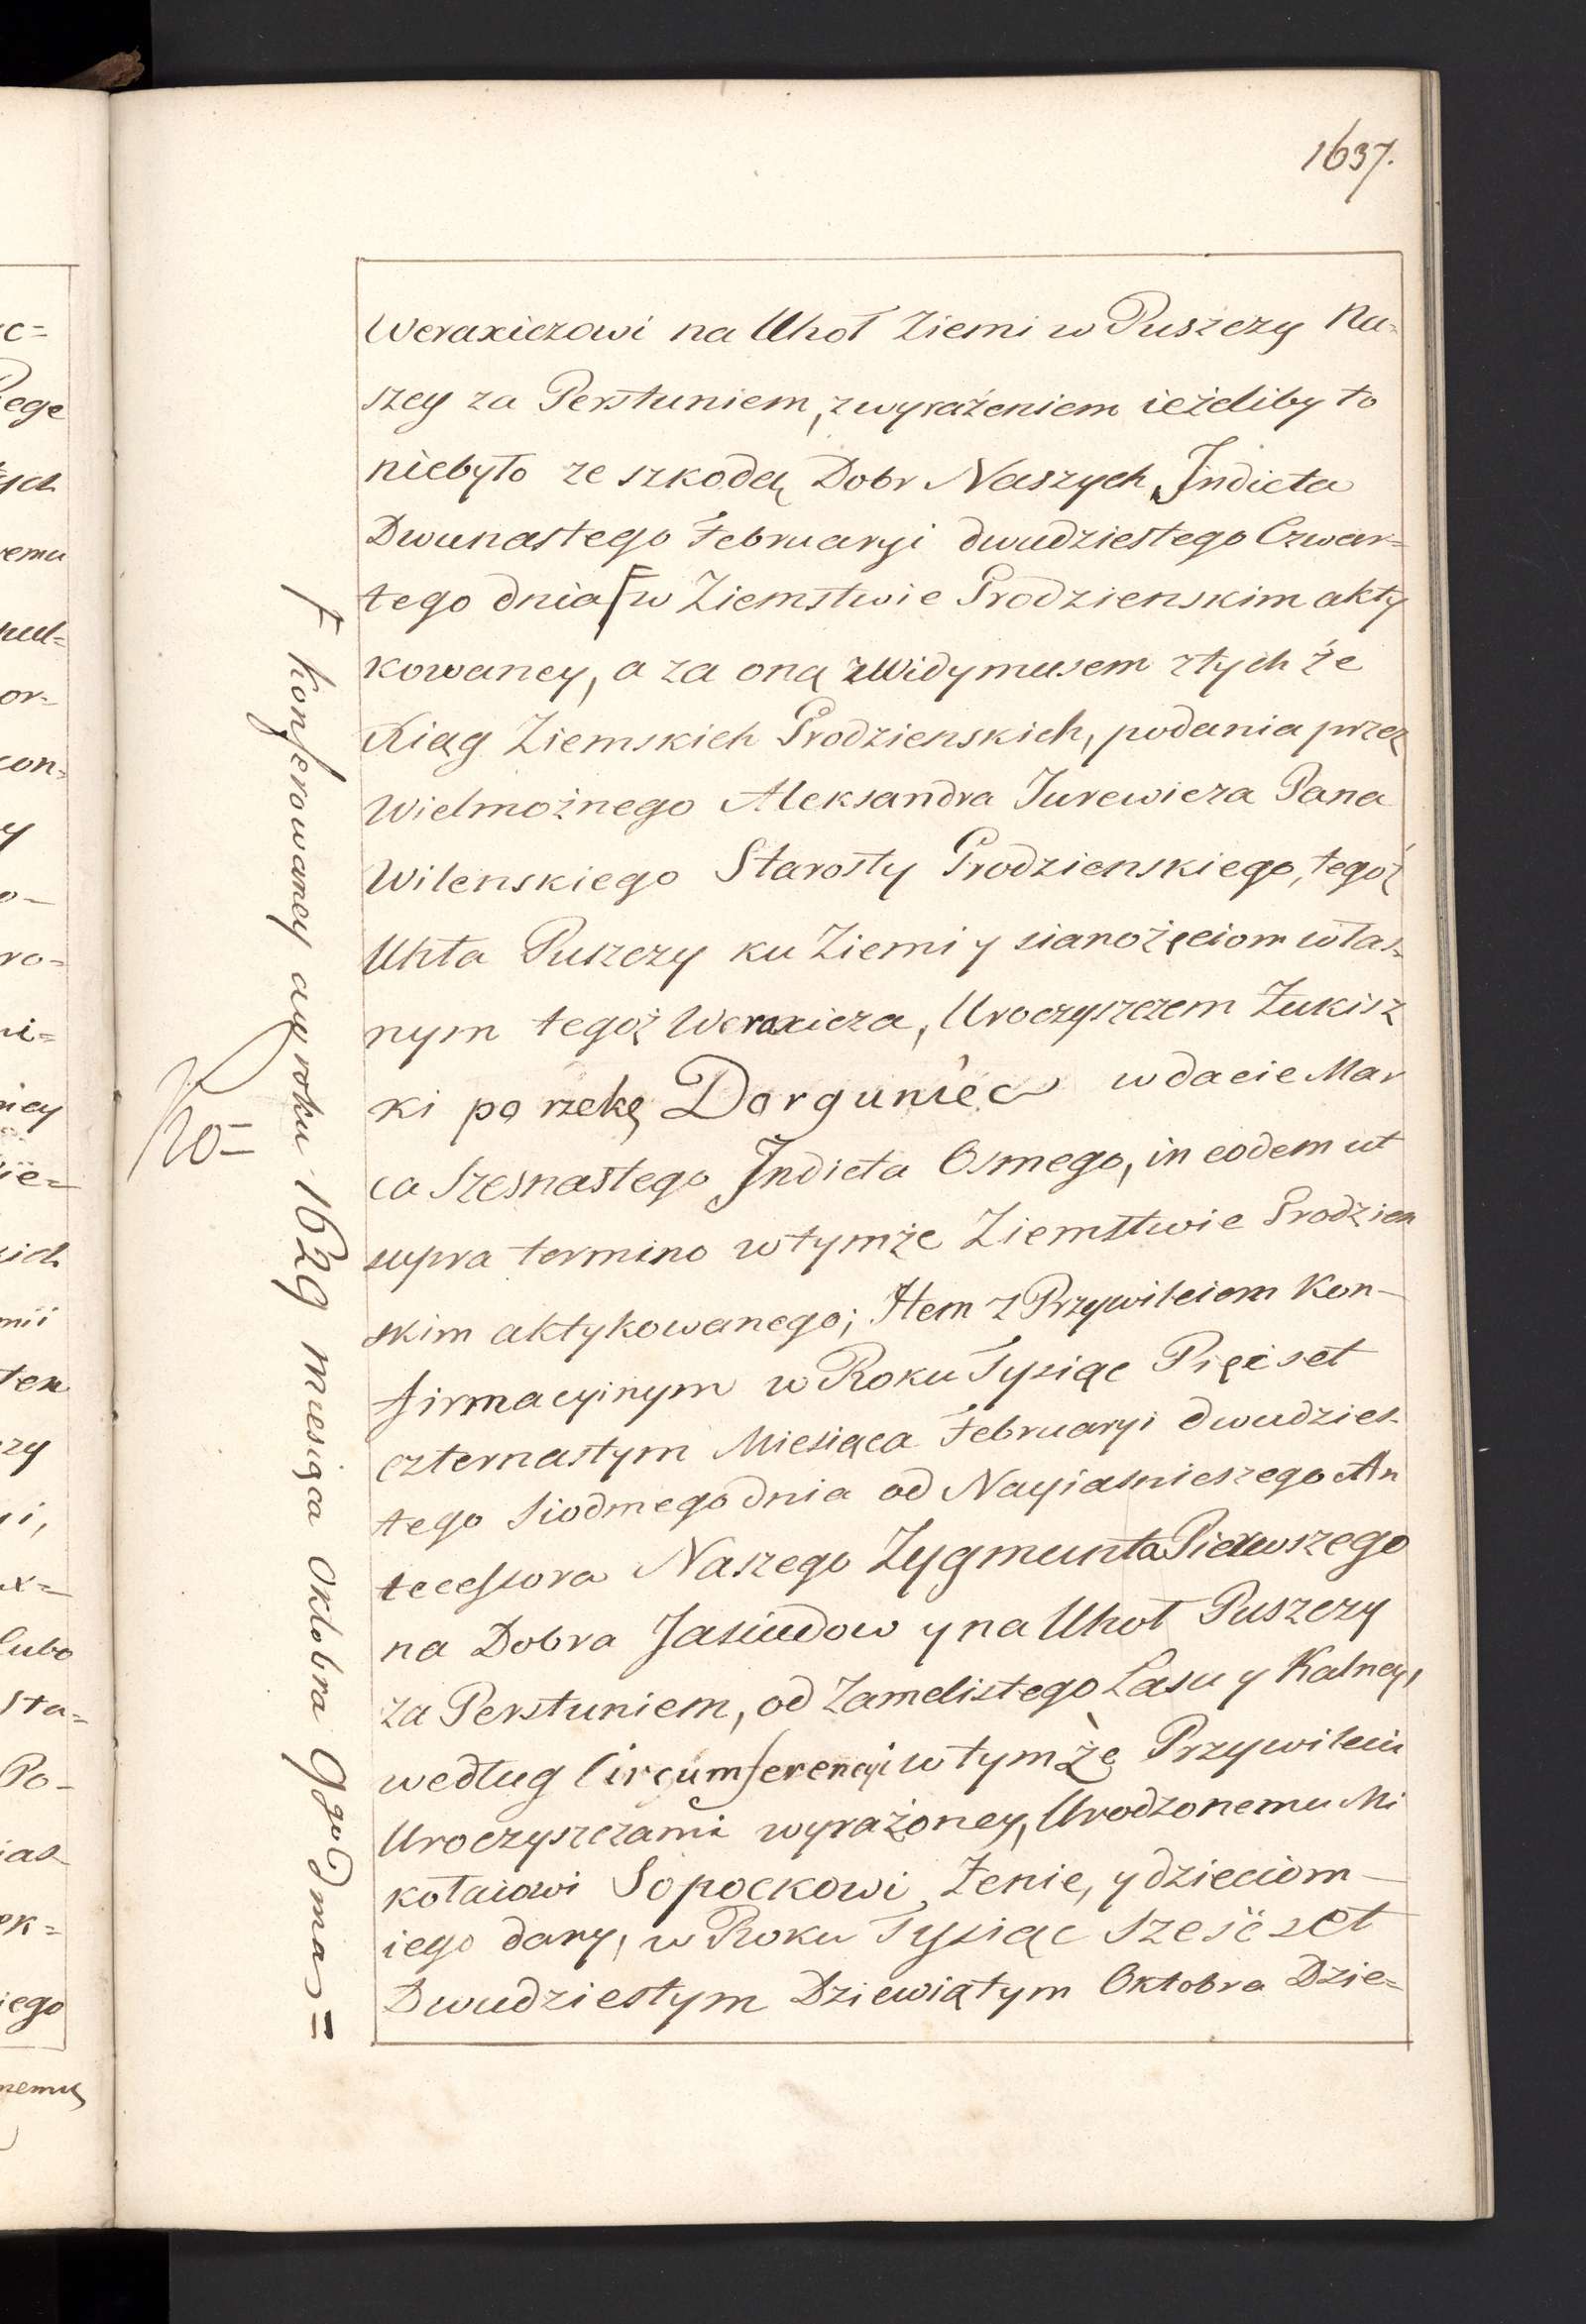 1637.
Weraxiczowi na Uhoł Ziemi w Puszczy Na=
szey za Perstuniem, z wyrażeniem ieżeliby to
niebyło ze szkodą Dobr Naszych, Indicta
Dwunastego Februaryi dwudziestego Czwar=
tego dnia Ⱶ w Ziemstwie Grodzienskim akty
kowaney, a za oną z Widymusem z tych że
Xiąg Ziemskich Grodzienskich, podania przez
Wielmożnego Aleksandra Jurewicza Pana
Wilenskiego Starosty Grodzienskiego, tegoż
Uhła Puszczy ku Ziemi y sianożęciom włas=
nym tegoż Weraxicza, Uroczyszczem Łukisz
ki po rzekę Dorguniec w dacie Mar
ca Szesnastego Indicta Osmego, in eodem ut
supra termino w tymże Ziemstwie Grodzien
skim aktykowanego; Item z Przywileiem Kon-
firmacyinym w Roku Tysiąc Pięćset
czternastym Miesiąca Februaryi dwudzies=
tego Siodmego dnia od Nayiasnieszego An
tecessora Naszego Zygmunta Pierwszego
na Dobra Jasiudow y na Uhoł Puszczy
za Perstuniem, od Zamelistego Lasu y Kalney,
według Circumferencyi w tymże Przywileiu
Uroczyszczami wyrażoney, Urodzonemu Mi
kołaiowi Sopockowi, Żenie, y dzieciom
iego dany, w Roku Tysiąc Sześćset
Dwudziestym Dziewiątym Oktobra Dzie=
Ⱶ konferowaney a w roku 1629 miesiąca Oktobra 9 god ma=